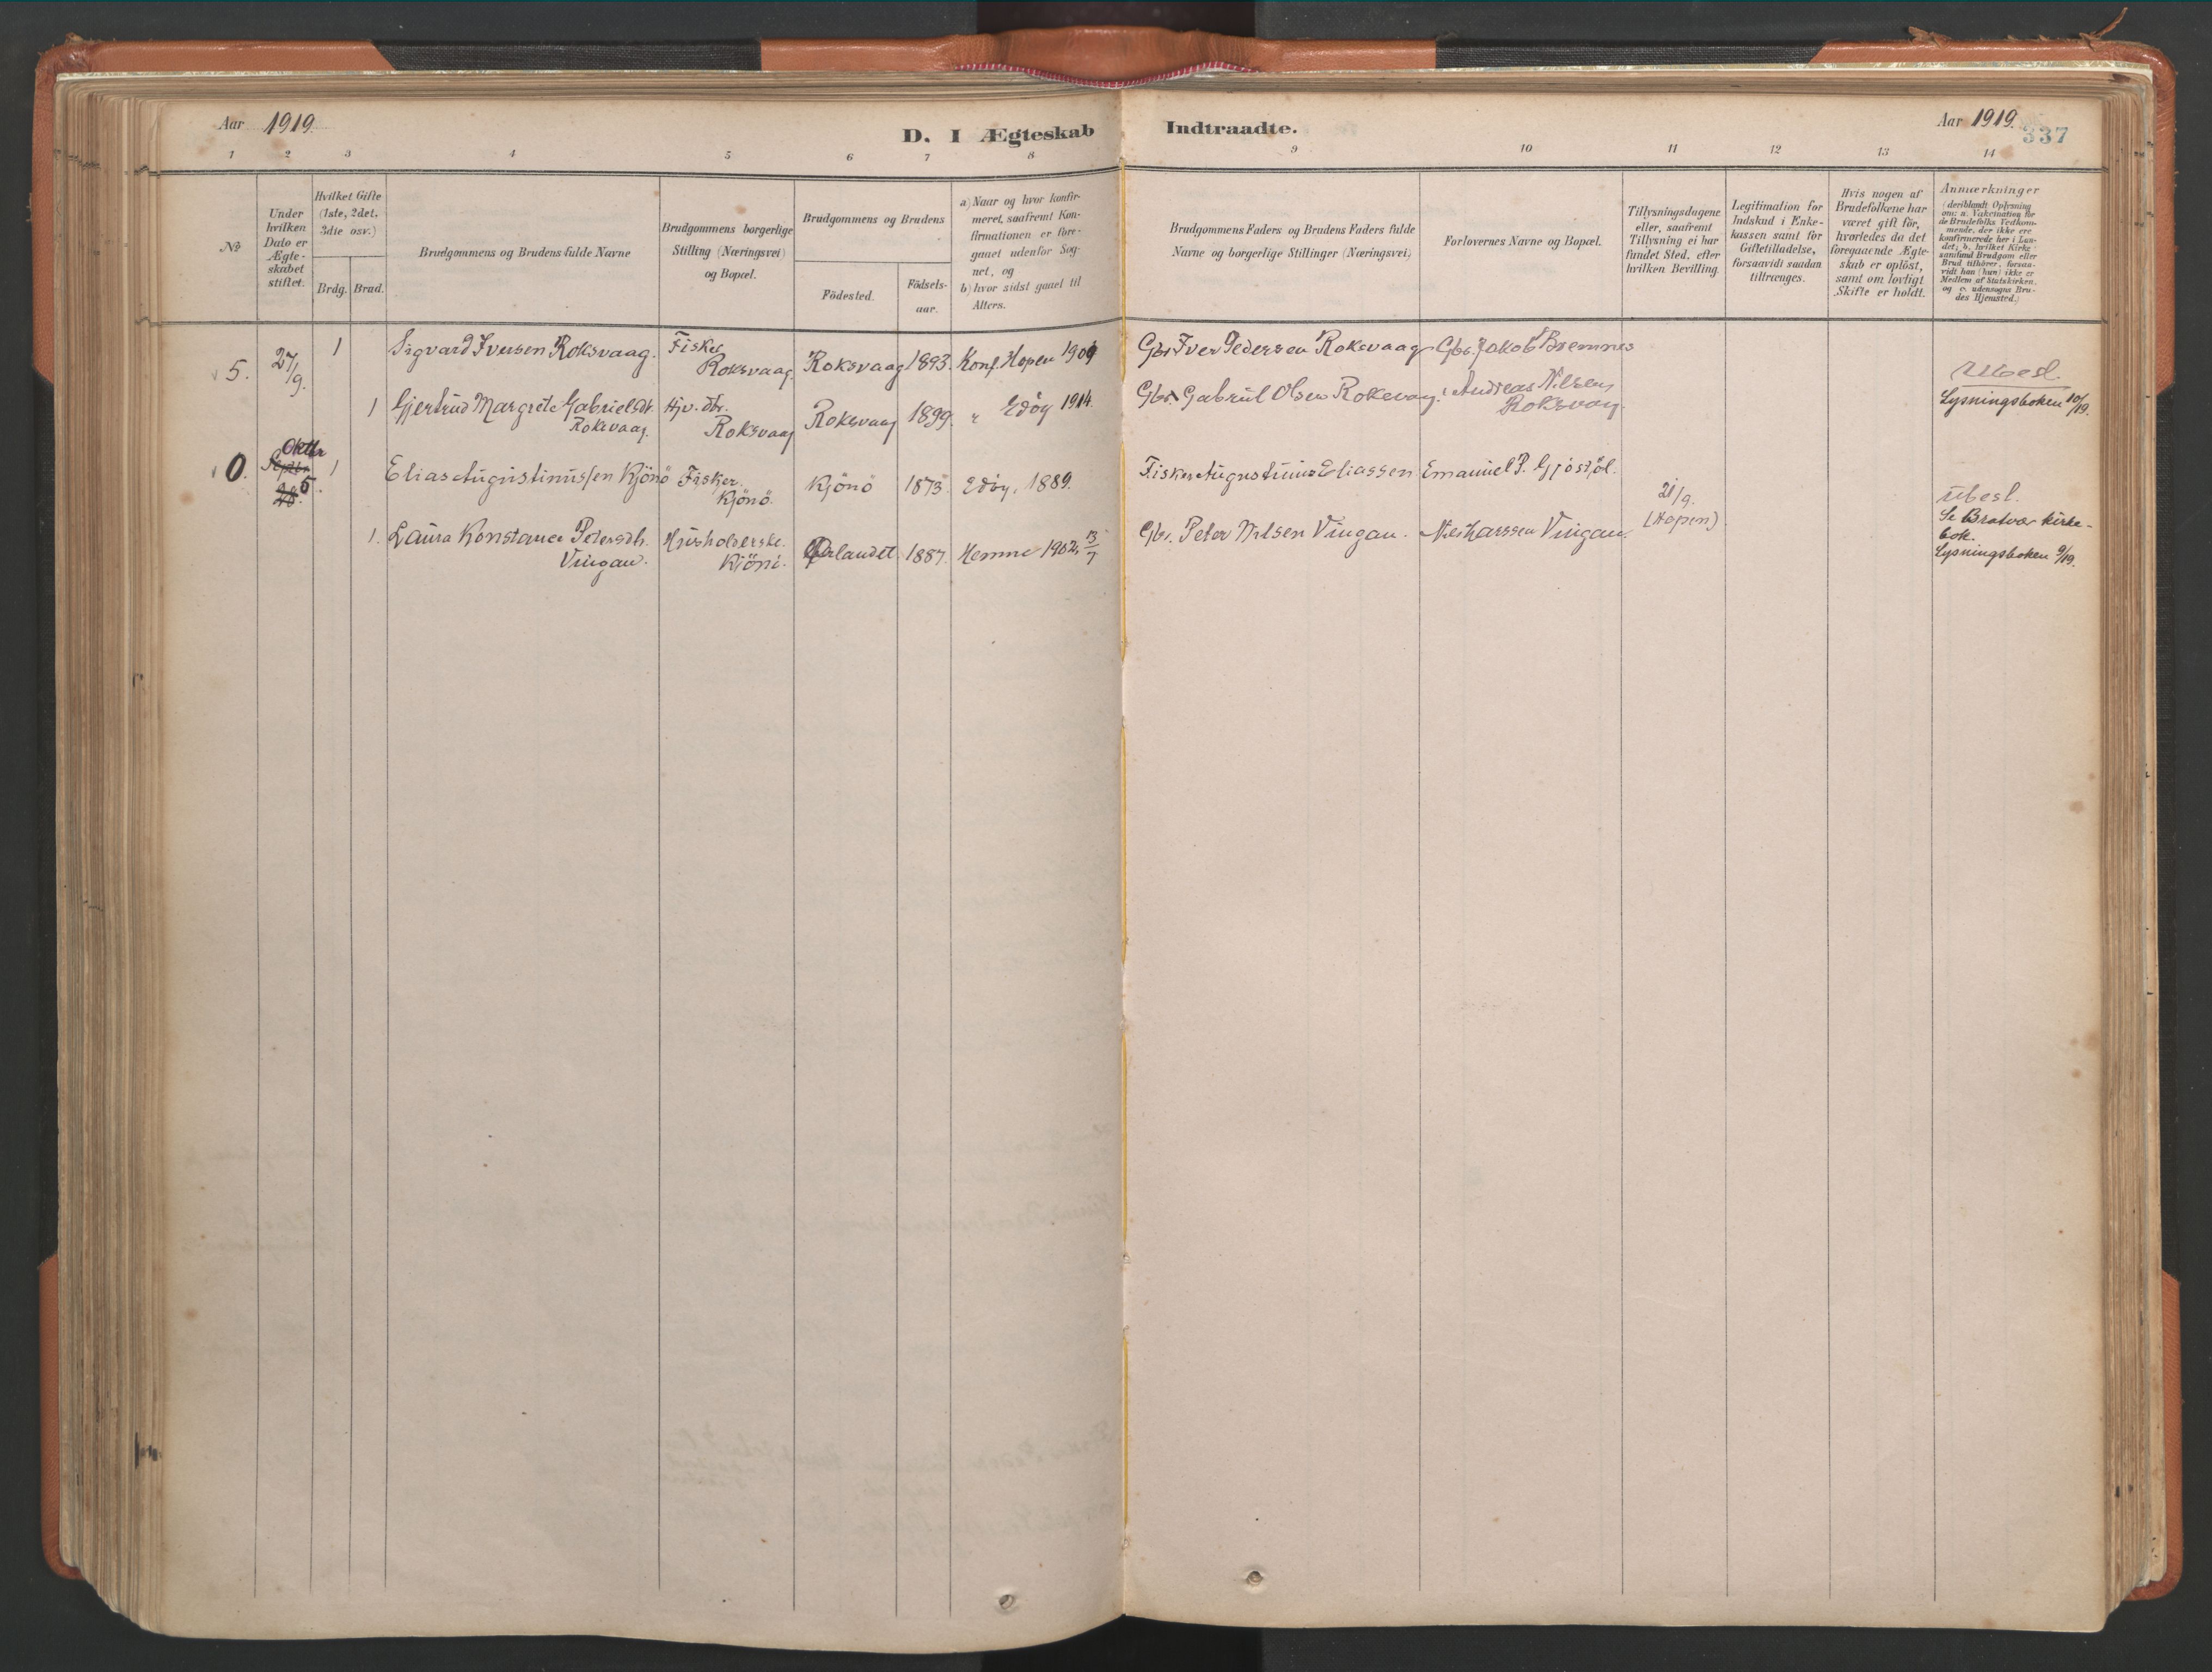 Aar 1919
D. I Ægteskab Indtraadte.
Aar 1919.
337
1 2 3 4 5 6 7 8 9 10 11 12 13 14
No
Under hvilken Dato er Ægteskabet stiftet.
Hvilket Gifte (1ste, 2det, 3die osv.)
Brdg. Brud.
Brudgommens og Brudens fulde Navne
Brudgommens borgerlige Stilling (Næringsvei) og Bopæl.
Brudgommens og Brudens
Födested.
Födsels-aar.
a) Naar og hvor konfir-
meret, saafremt Kon-
firmationen er fore-
gaaet udenfor Sog-
net, og
b) hvor sidst gaaet til
Alters.
Brudgommens Faders og Brudens Faders fulde
Navne og borgerlige Stillinger (Næringsvei)
Forlovernes Navne og Bopæl.
Tillysningsdagene
eller, saafremt
Tillysning ei har
fundet Sted, efter
hvilken Bevilling.
Legitimation for
Indskud i Enke-
kassen samt for
Giftetilladelse,
forsaavidt saadan
tiltrænges.
Hvis nogen af
Brudefolkene har
været gift för,
hvorledes da det
foregaaende Ægte-
skab er oplöst,
samt om lovligt
Skifte er holdt.
Anmærkninger
(deriblandt Oplysning
om: a. Vakcination for
de Brudefolks Vedkom-
mende, der ikke ere
konfirmerede her i Lan-
det; b. hvilket Kirke-
samfund Brudgom eller
Brud tilhörer, forsaa-
vidt han (hun) ikke er
Medlem af Statskirken,
og c. udensogns Bru-
des Hjemsted.)
5. 27/9. 1 Sigvard Iversen Roksvaag. Fisker Roksvaag. Roksvaag 1893. Konf. Hopen 1909 Gbr Iver Pedersen Roksvaag Gbr. Jakob Bremnes
Ubesl.
1 Gjertrud Margrete Gabrielsdt. Roksvaag. Hjv. dtr. Roksvaag Roksvaag 1899. " Edöy 1914. Gbr. Gabriel Olsen Roksvaag. Andreas Nilsen Roksvaag
Lysningsboken 10/19.
0. Oktbr Septbr 28. 5. 1 Elias Augustinussen Kjönö Fisker. Kjönö. Kjönö 1873 Edöy. 1889. Fisker Augustinus Eliassen Emanuel P. Gjöstöl.
21/9. (Hopen)
Ubesl.
Se Bratvær kirke-
bok.
Lysningsboken 9/19.
1. Laura Konstance Petersdtr. Vingan. Husholderske. Kjönö. Ørlandet 1887. Hemne 1902. 13/7 Gbr. Peter Nilsen Vingan. Vingan.